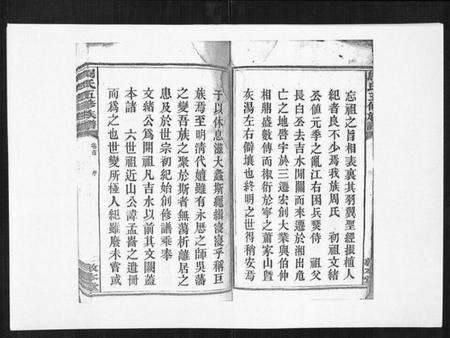 忘祖之旨相表裏其羽翼聖經振植人
紀者良不少焉我族周氏　初祖文緒
公値元季之亂江右困兵燹侍　祖父
長白公去吉水閒關而來遷於湘出危
亡之地啓宇於三遷宏創大業與伯仲
相鼎盛數傳而椒衍於寧之蕭家山曁
灰湯左右僻壤也終明之世得稍安焉
于以休息滋大螽斯繩繩寖寖乎稱巨
族焉至明清代嬗雖有永歷之師吳藩
之變吾族之聚於斯者無蕩析離居之
患及於世宗初紀始創修譜乘奉
文緒公爲開祖凡吉水以前其文闕蓋
本諸　六世祖近山公諱孟嵛之遺冊
而爲之也世變所極人紀雖廢未嘗或
周氏五修族譜
卷首　序
敦本堂